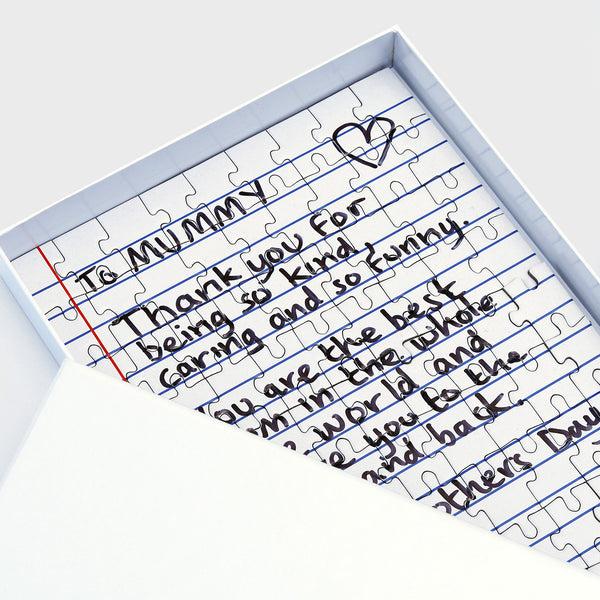 To MUMMY
Thank you for
being so kind,
caring and so funny.
You are the best
in the whole
world and
you to the
and back.
Day